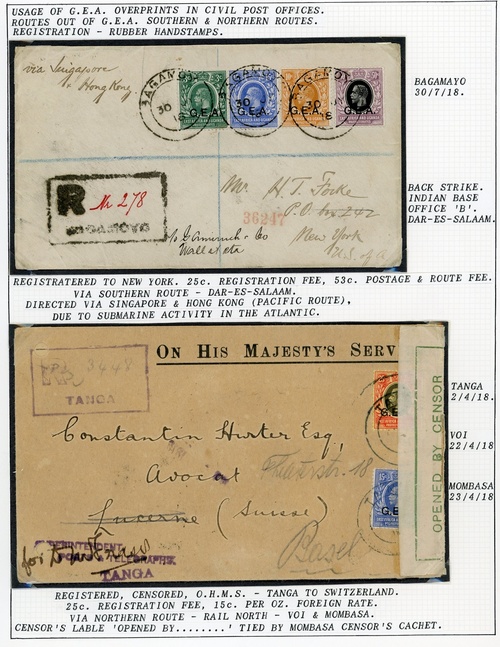 USAGE OF G.E.A. OVERPRINTS IN CIVIL POST OFFICES.
ROUTES OUT OF G.E.A. SOUTHERN & NORTHERN ROUTES.
REGISTRATION - RUBBER HANDSTAMPS.
via Singapore
to Hong Kong
BAGAMOYO
30
18
G.E.A. G.E.A. G.E.A. G.E.A.
BAGAMAYO
30/7/18.
R № 278
BAGAMOYO
Mr H. T. Forke
36247
P.O. box 242
New York
U.S. of A
BACK STRIKE.
INDIAN BASE
OFFICE 'B'.
DAR-ES-SALAAM.
REGISTRATERED TO NEW YORK. 25c. REGISTRATION FEE, 53c. POSTAGE & ROUTE FEE.
VIA SOUTHERN ROUTE - DAR-ES-SALAAM.
DIRECTED VIA SINGAPORE & HONG KONG (PACIFIC ROUTE),
DUE TO SUBMARINE ACTIVITY IN THE ATLANTIC.
ON HIS MAJESTY'S SERV
3448
TANGA
Constantin Hurter Esq,
Advocat
Lucerne (Suisse)
Basel
POSTS & TELEGRAPHS
TANGA
OPENED BY CENSOR
TANGA
2/4/18.
VOI
22/4/18
MOMBASA
23/4/18
REGISTERED, CENSORED, O.H.M.S. - TANGA TO SWITZERLAND.
25c. REGISTRATION FEE, 15c. PER OZ. FOREIGN RATE.
VIA NORTHERN ROUTE - RAIL NORTH - VOI & MOMBASA.
CENSOR'S LABLE 'OPENED BY........' TIED BY MOMBASA CENSOR'S CACHET.